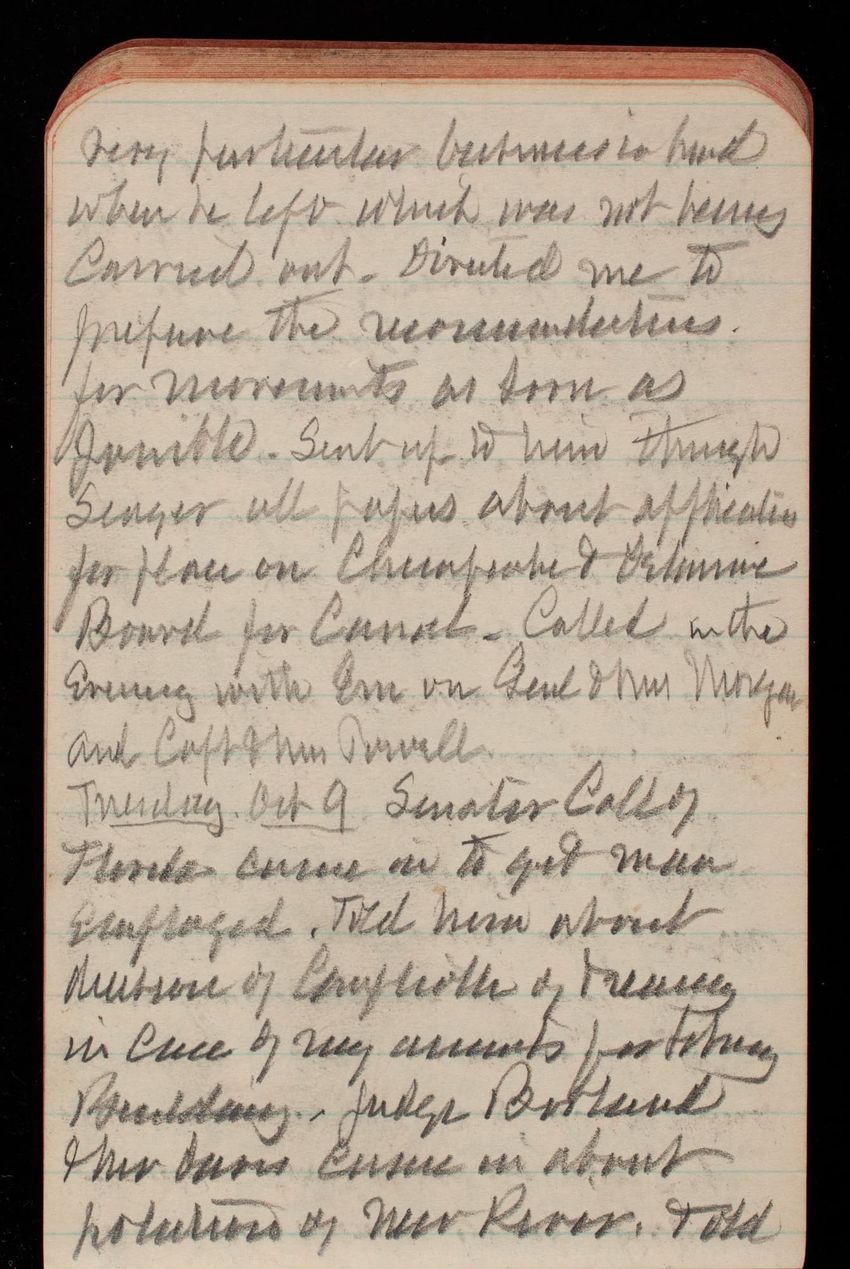 very particular business in hand
when he left which was not being
Carried out. Directed me to
prepare the recommendations
for movements as soon as
possible. Sent up to him through
Seager all papers about application
for place on Chesapeake & Delaware
Board for Canal. Called in the
Evening with Em on Genl & Mrs Morgan
and Capt & Mrs Powell
Tuesday Oct 9 Senator Call of
Florida came in to get man
Employed. Told him about
decision of Comptroller of Treasury
in Case of my accounts for Library
Building. Judge
& Mr Davis came in about
of New River. Told